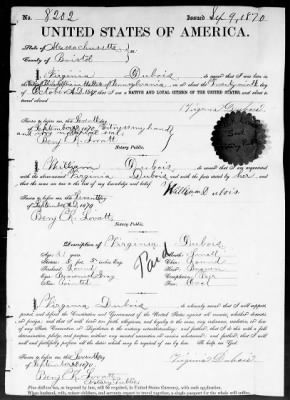 No. 8202 Issued Sep 9, 1870
State of Massachusetts
County of Bristol
I Virginia Dubois do swear that I was born in the
of Pennsylvania, on or about the twenty ninth day
of October A.D. that I am a NATIVE and LOYAL CITIZEN OF THE UNITED STATES, and about to
travel abroad
Virginia Dubois
Sworn to before me this Seventh day
of September 1870, Witness my hand
and my
Benj. K. Lovatt
Notary Public.
I William Dubois do swear that I am acquainted
with the above-named Virginia Dubois and with the facts stated by her and
that the same are true to the best of my knowledge and belief.
William Dubois
Sworn to before me this Seventh
day of September A.D. 1870
Benj. K. Lovatt
Notary Public.
Description of Virginia Dubois
Age: years Mouth: Small
Stature: 5 feet inches Eng. Chin: Round
Forehead: Round Hair: Brown
Eyes: Gray Complexion: Fair
Nose: Face: Oval
Paid
I Virginia Dubois do solemnly swear that I will support, protect,
and defend the Constitution and Government of the United States against all enemies, whether domestic
or foreign; and that I will bear true faith, allegiance, and loyalty to the same, any ordinance, resolution, or law
of any State, Convention, or Legislature to the contrary notwithstanding; and further, that I do this with a full
determination, pledge, and purpose, without any mental reservation or evasion whatsoever; and further, that I will
well and faithfully perform all the duties which may be required of me by law. So help me God.
Sworn to before me this Seventh day
of September A.D. 1870
Virginia Dubois
Benj. K. Lovatt
Notary Public